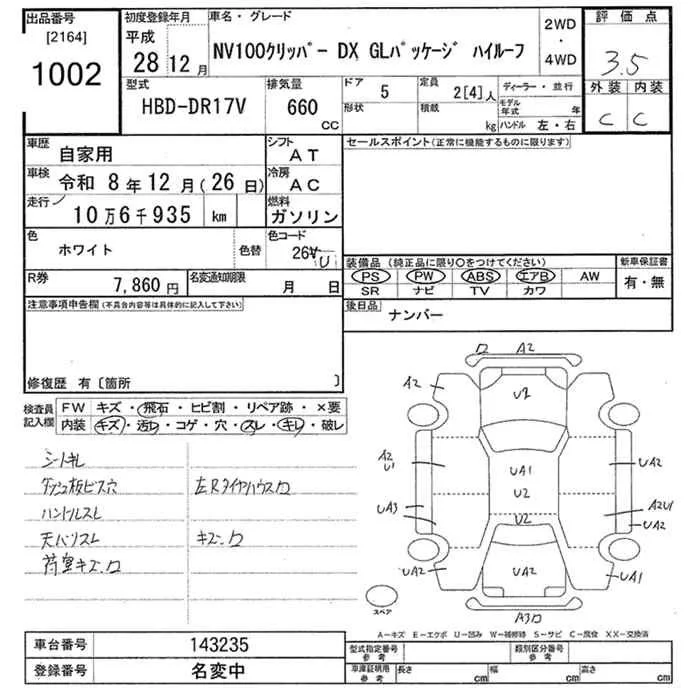 出品番号
[2164]
1002
初度登録年月
平成
28 12 月
車名・グレード
NV100クリッパー DX GLパッケージ ハイルーフ
2WD
・
4WD
評価点
3.5
外装 内装
C C
型式
HBD-DR17V
排気量
660
CC
ドア 5
形状
定員 2[4]人
積載 kg
ディーラー・並行
モデル年式 年
ハンドル 左・右
車歴
自家用
シフト
AT
車検 令和 8年12月(26日)
冷房
AC
走行
10万6千935 km
燃料
ガソリン
色
ホワイト
色替
色コード
26V
U
R券
7,860 円
名変通知期限
月 日
セールスポイント(正常に機能するものに限ります)
装備品 (純正品に限り○をつけてください)
新車保証書
PS PW ABS エアB AW
SR ナビ TV カワ
有・無
後日品
ナンバー
注意事項申告欄(不具合内容等は具体的に記入して下さい)
修復歴 有〔箇所 〕
検査員
記入欄
FW キズ・飛石・ヒビ割・リペア跡・×要
内装 キズ・汚レ・コゲ・穴・スレ・キレ・破レ
シートキレ
ダッシュ板ビス穴 左Rタイヤハウスロ
ハンドルスレ
天バリスレ キズ.ロ
荷室キズ.ロ
ロ A2
A2 U2
A2
U1
UA1
UA2
U2
UA3
A2U1
U2
UA2
UA2 UA2 UA1
A3ロ
スペア
A−キズ E−エクボ U−凹み W−補修跡 S−サビ C−腐食 XX−交換済
車台番号 143235
登録番号 名変中
型式指定番号
参考
類別区分番号
参考
車庫証明用
参考
長さ cm 幅 cm 高さ cm